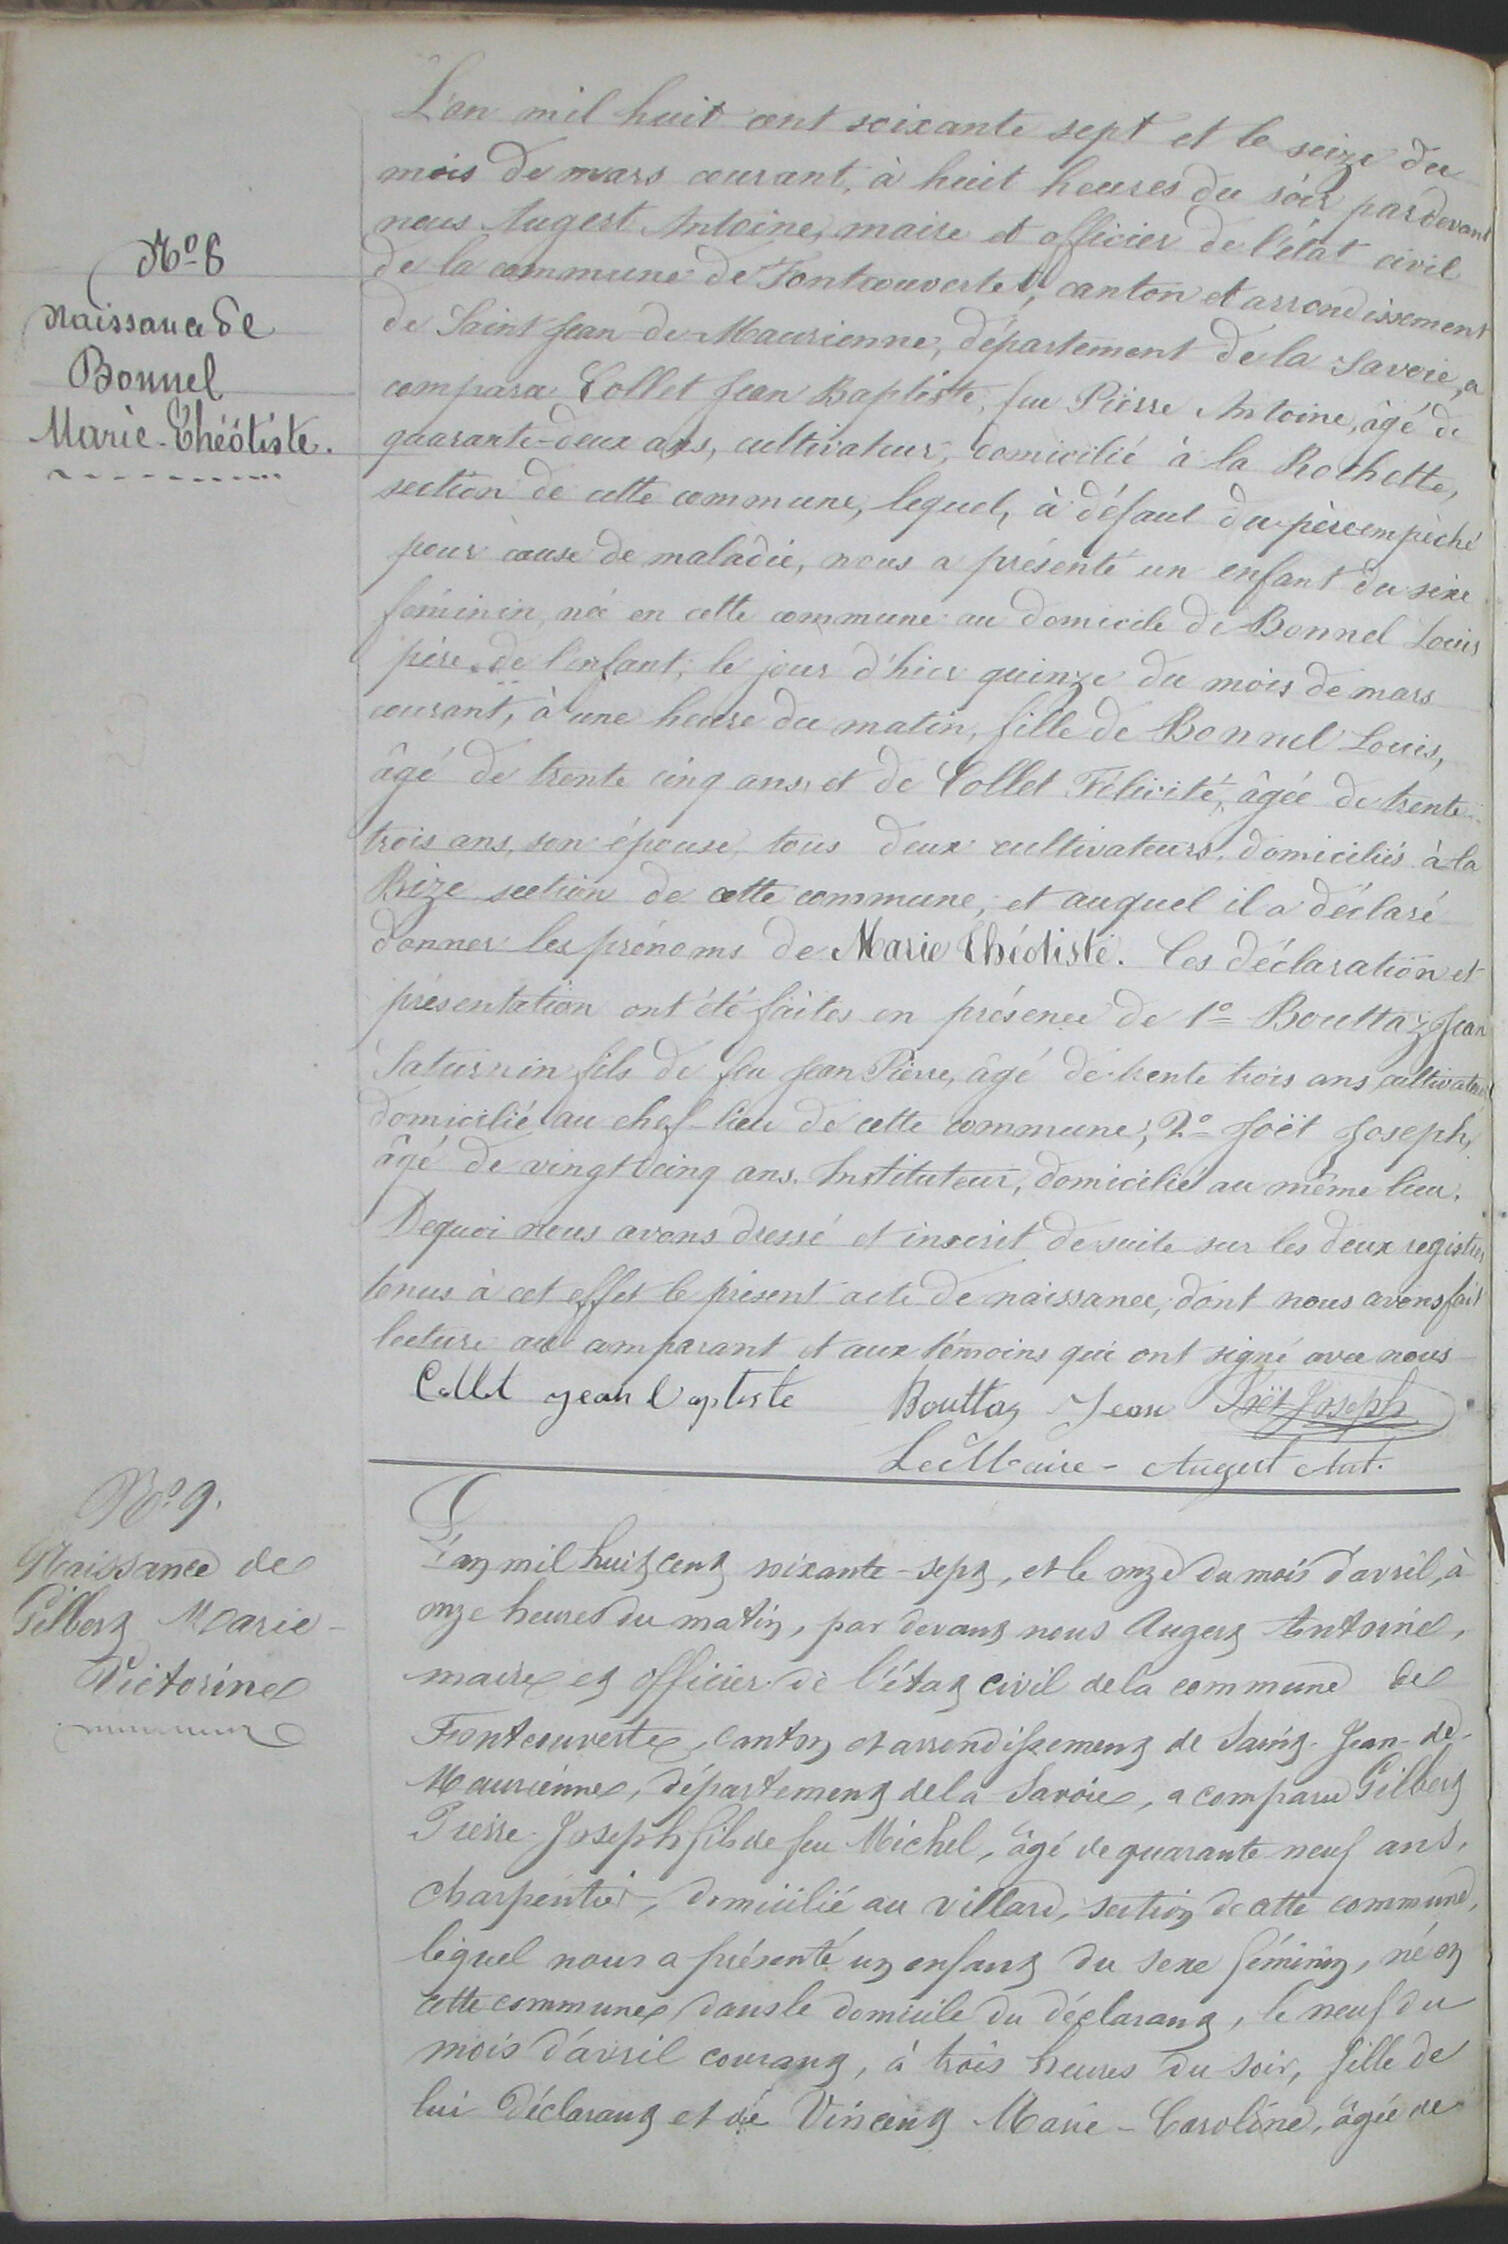 L'an mil huit cent soixante sept et le seize du
mois de mars courant, à huit heures du soir pardevant
nous Augert Antoine, maire et officier de l'état civil
de la commune de Fontcouverte, canton et arrondissement
de Saint Jean de Maurienne, département de la Savoie, a
comparu Collet Jean Baptiste, feu Pierre Antoine, âgé de
quarante-deux ans, cultivateur, domicilié à la Rochette,
section de cette commune, lequel, à défaut du père empêché
pour cause de maladie, nous a présenté un enfant du sexe
féminin, né en cette commune au domicile de Bonnel Louis
père de l'enfant, le jour d'hier quinze du mois de mars
courant, à une heure du matin, fille de Bonnel Louis,
âgé de trente cinq ans, et de Collet Félicité, âgée de trente
trois ans, son épouse, tous deux cultivateurs, domiciliés à la
Rize section de cette commune, et auquel il a déclaré
donner les prénoms de Marie Théotiste. Ces déclaration et
présentation ont été faites en présence de 1º Bouttaz Jean
Saturnin fils de feu Jean Pierre, âgé de trente trois ans, cultivateur
domicilié au chef-lieu de cette commune; 2º Joët Joseph,
âgé de vingt cinq ans, Instituteur, domicilié au même lieu.
Dequoi nous avons dressé et inscrit de suite sur les deux registres
tenus à cet effet le présent acte de naissance, dont nous avons fait
lecture au comparant et aux témoins qui ont signé avec nous
Collet jean baptiste Bouttaz Jean Joët Joseph
Le Maire - Augert Ant.
Nº 8
Naissance de
Bonnel
Marie-Théotiste.
Nº 9.
Naissance de
Gilbert Marie-
Victorine
L'an mil huit cent soixante-sept, et le onze du mois d'avril, à
onze heures du matin, par devant nous Augert Antoine,
maire et officier de l'état civil de la commune de
Fontcouverte, canton et arrondissement de Saint-Jean-de-
Maurienne, département de la Savoie, a comparu Gilbert
Pierre-Joseph fils de feu Michel, âgé de quarante neuf ans,
charpentier, domicilié au Villard, section de cette commune,
lequel nous a présenté un enfant du sexe féminin, né en
cette commune dans le domicile du déclarant, le neuf du
mois d'avril courant, à trois heures du soir, fille de
lui déclarant et de Vincent Marie-Caroline, âgée de